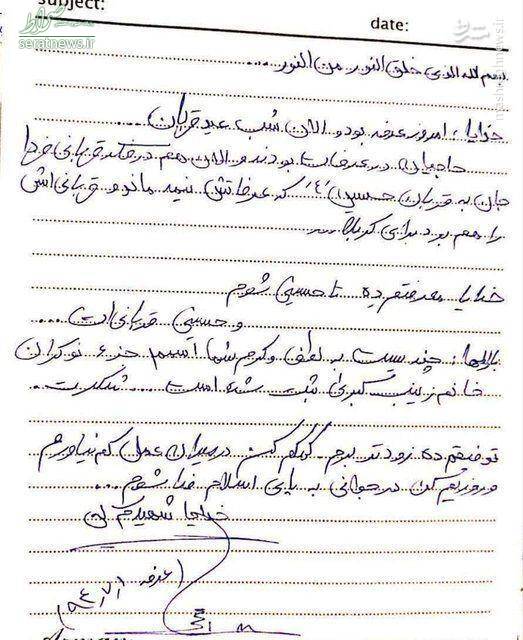 subject:
date:
seratnews.ir
mashreghnews.ir
بسم الله الذی خلق النور من النور ...
خدایا، امروز عرفه بود و الان شب عید قربان ...
حاجیان در عرفات بودند و الان هم در فکر قربانی فردا
جان به قربان حسین (ع) که عرفاتش نیمه ماند و قربانی اش
را هم برد برای کربلا ...
خدایا معرفتم ده تا حسینی شوم
و حسینی قربانی ات ...
بارالها، چندیست به لطف و کرم شما اسمم جزء نوکران
خانم زینب کبری ثبت شده است ... شکرت ...
توفیقم ده زودتر بروم. کمکم کن در میدان عمل کم نیاورم
و روزیم کن در جوانی به پای اسلام فدا شوم ...
خدایا شهیدم کن
(عرفه ۹۴/۷/۱)